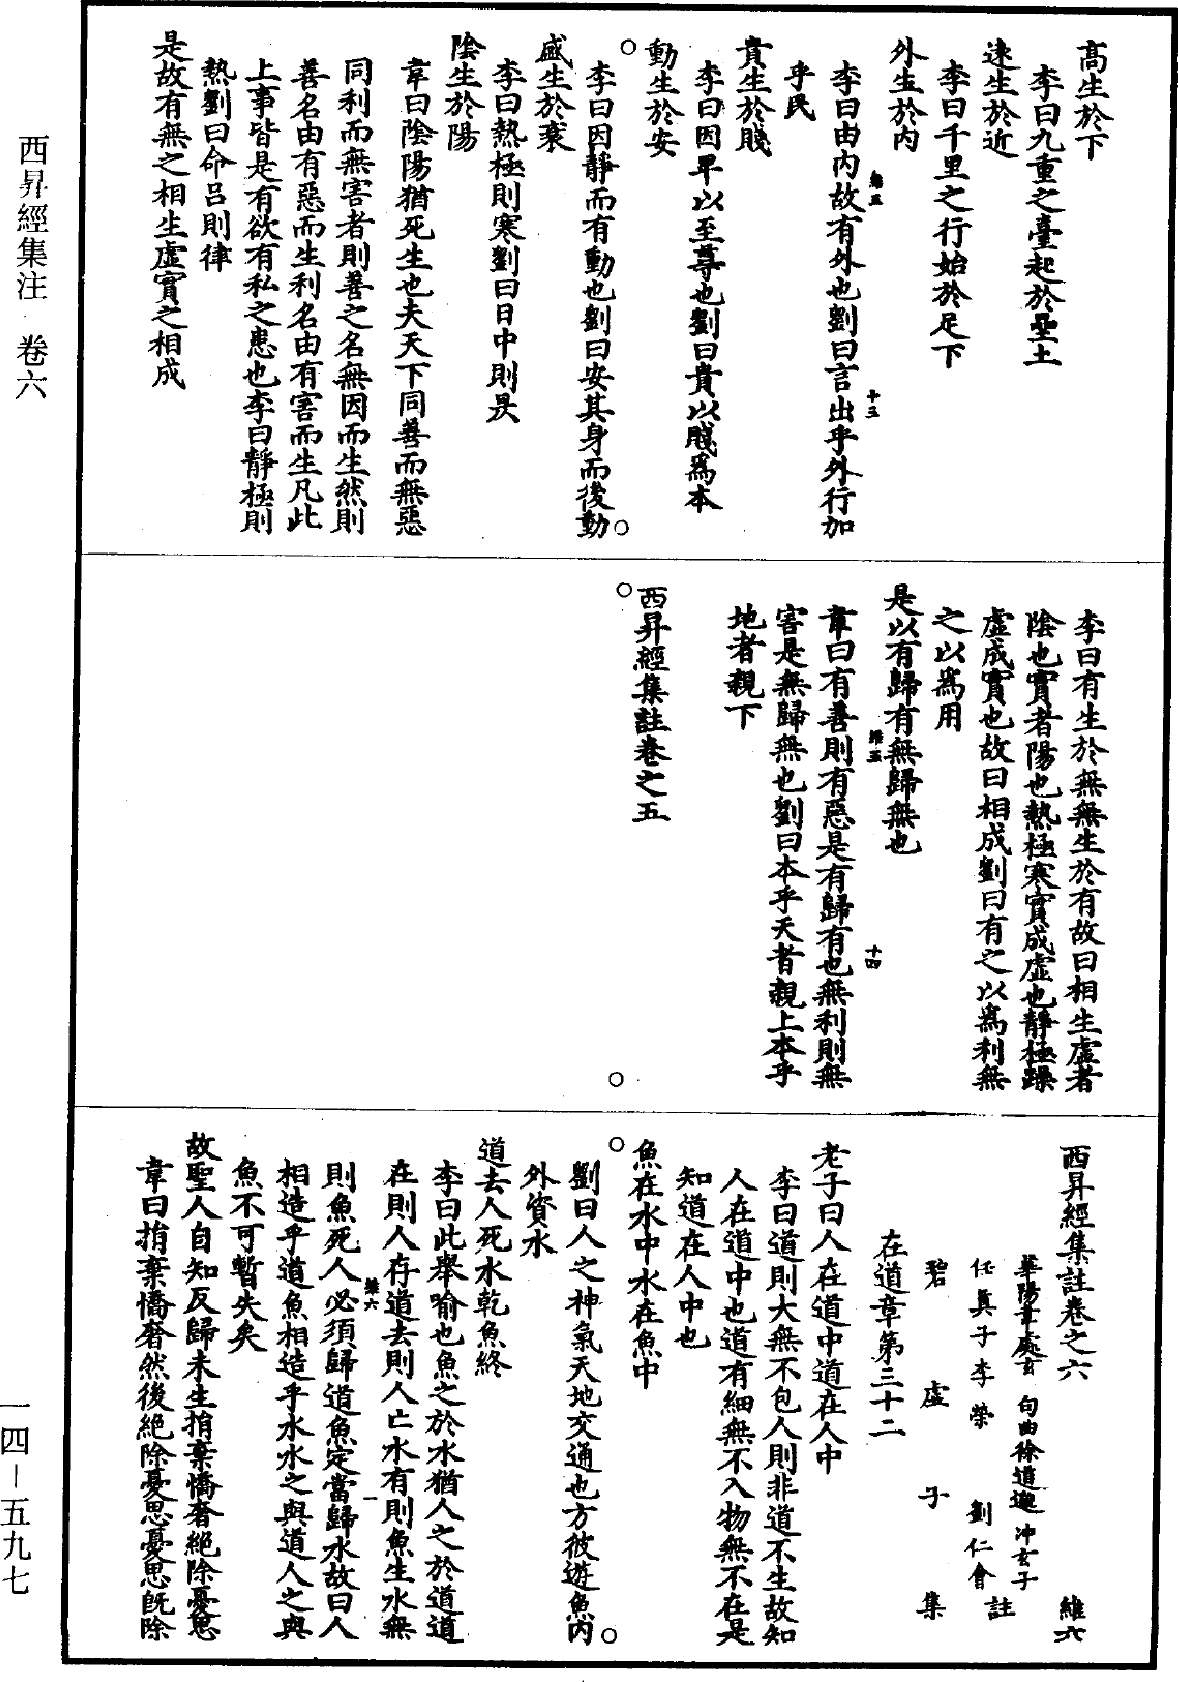 高生於下
李曰九重之臺起於壘土
速生於近
李曰千里之行始於足下
外生於内
李曰由内故有外也劉曰言出乎外行加
乎民
維五
十三
貴生於賤
李曰因卑以至尊也劉曰貴以賤為本
動生於安
李曰因静而有動也劉曰安其身而後動
盛生於衰
李曰熱極則寒劉曰日中則昃
陰生於陽
韋曰陰陽猶死生也夫天下同善而無惡
同利而無害者則善之名無因而生然則
善名由有惡而生利名由有害而生凡此
上事皆是有欲有私之患也李曰靜極則
熱劉曰命吕則律
是故有無之相生虛實之相成
李曰有生於無無生於有故曰相生虛者
陰也實者陽也熱極寒實成虛也靜極躁
虛成實也故曰相成劉曰有之以為利無
之以為用
是以有歸有無歸無也
維五
十四
韋曰有善則有惡是有歸有也無利則無
害是無歸無也劉曰本乎天者親上本乎
地者親下
西昇經集註卷之五
西昇經集註卷之六
維六
華陽韋處玄 句曲徐道邈 冲玄子
任真子李榮 劉仁會 註
碧虛子集
在道章第三十二
老子曰人在道中道在人中
李曰道則大無不包人則非道不生故知
人在道中也道有細無不入物無不在是
知道在人中也
魚在水中水在魚中
劉曰人之神氣天地交通也方彼遊魚内
外資水
道去人死水乾魚終
李曰此舉喻也魚之於水猶人之於道道
在則人存道去則人亡水有則魚生水無
維六
一
則魚死人必須歸道魚定當歸水故曰人
相造乎道魚相造乎水水之與道人之與
魚不可暫失矣
故聖人自知反歸未生捐棄憍奢絶除憂思
韋曰捐棄憍奢然後絶除憂思憂思既除
西昇經集注 卷六
一四－五九七